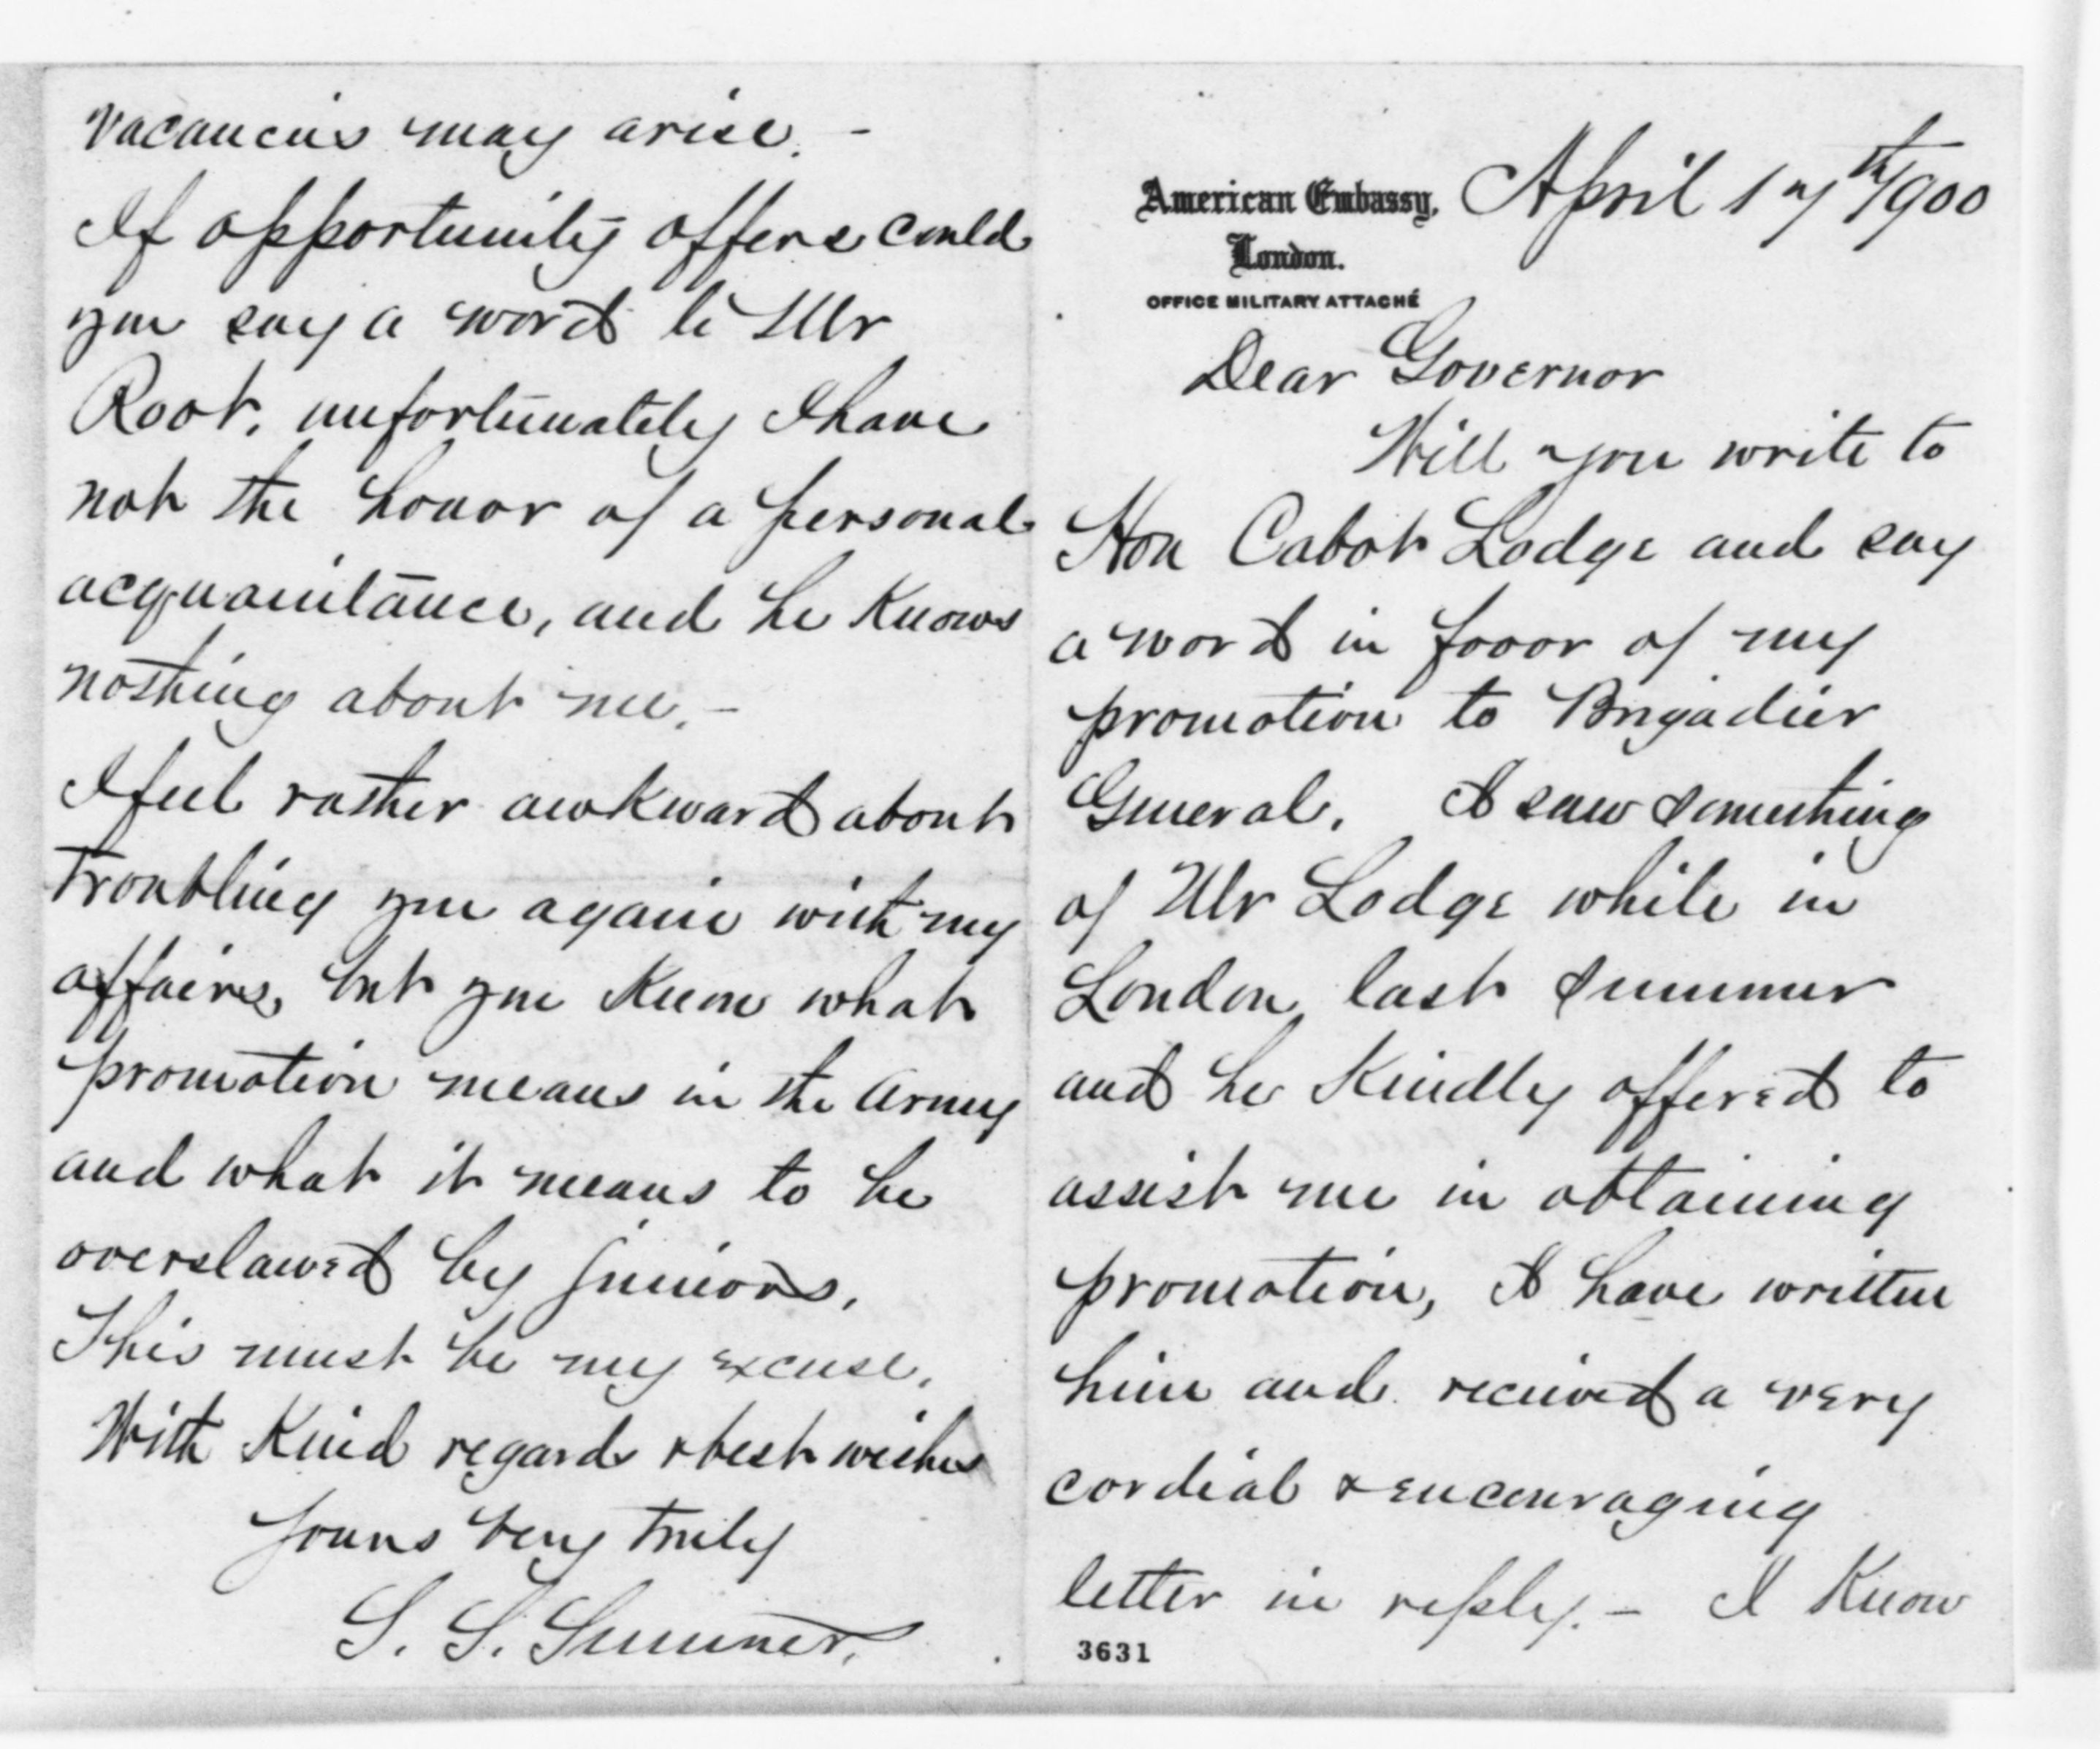 American Embassy, April 17th/1900
London.
OFFICE MILITARY ATTACHÉ
Dear Governor
Will you write to
Hon Cabot Lodge and say
a word in favor of my
promotion to Brigadier
General. I saw something
of Mr Lodge while in
London last summer
and he kindly offered to
assist me in obtaining
promotion, I have written
him and received a very
cordial & encouraging
letter in reply. - I know
3631
vacancies may arise. -
If opportunity offers could
you say a word to Mr
Root. unfortunately I have
not the honor of a personal
acquaintance, and he knows
nothing about me. -
I feel rather awkward about
troubling you again with my
affairs, but you know what
promotion means in the army
and what it means to be
overslawed by juniors.
This must be my excuse.
With kind regards & best wishes
Yours very truly
S. S. Sumner.